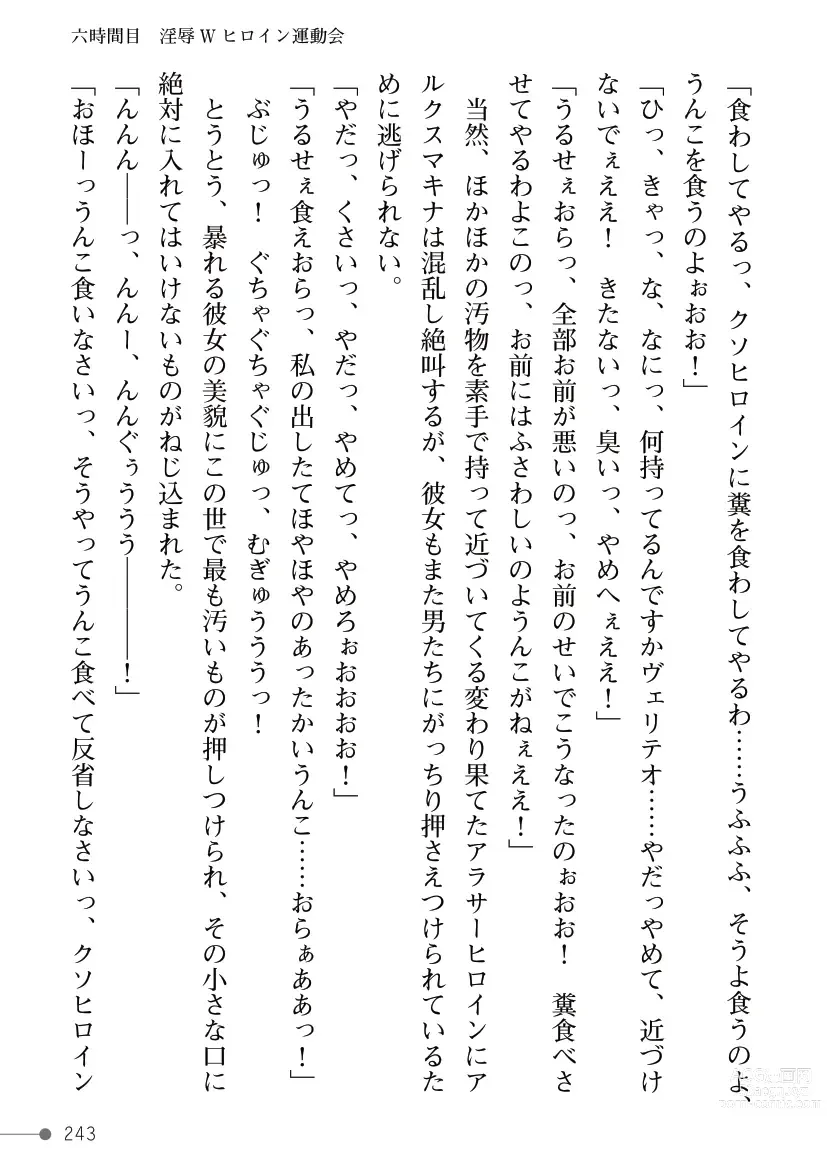 六時間目　淫辱Wヒロイン運動会
「食わしてやるっ、クソヒロインに糞を食わしてやるわ……うふふふ、そうよ食うのよ、
うんこを食うのよぉおお！」
「ひっ、きゃっ、な、なにっ、何持ってるんですかヴェリテオ……やだっやめて、近づけ
ないでぇええ！　きたないっ、臭いっ、やめへぇええ！」
「うるせぇおらっ、全部お前が悪いのっ、お前のせいでこうなったのぉおお！　糞食べさ
せてやるわよこのっ、お前にはふさわしいのようんこがねぇええ！」
　当然、ほかほかの汚物を素手で持って近づいてくる変わり果てたアラサーヒロインにア
ルクスマキナは混乱し絶叫するが、彼女もまた男たちにがっちり押さえつけられているた
めに逃げられない。
「やだっ、くさいっ、やだっ、やめてっ、やめろぉおおおお！」
「うるせぇ食えおらっ、私の出したてほやほやのあったかいうんこ……おらぁああっ！」
　ぶじゅっ！　ぐちゃぐちゃぐじゅっ、むぎゅうううっ！
　とうとう、暴れる彼女の美貌にこの世で最も汚いものが押しつけられ、その小さな口に
絶対に入れてはいけないものがねじ込まれた。
「んんん――っ、んんー、んんぐぅううう――――！」
「おほーっうんこ食いなさいっ、そうやってうんこ食べて反省しなさいっ、クソヒロイン
243